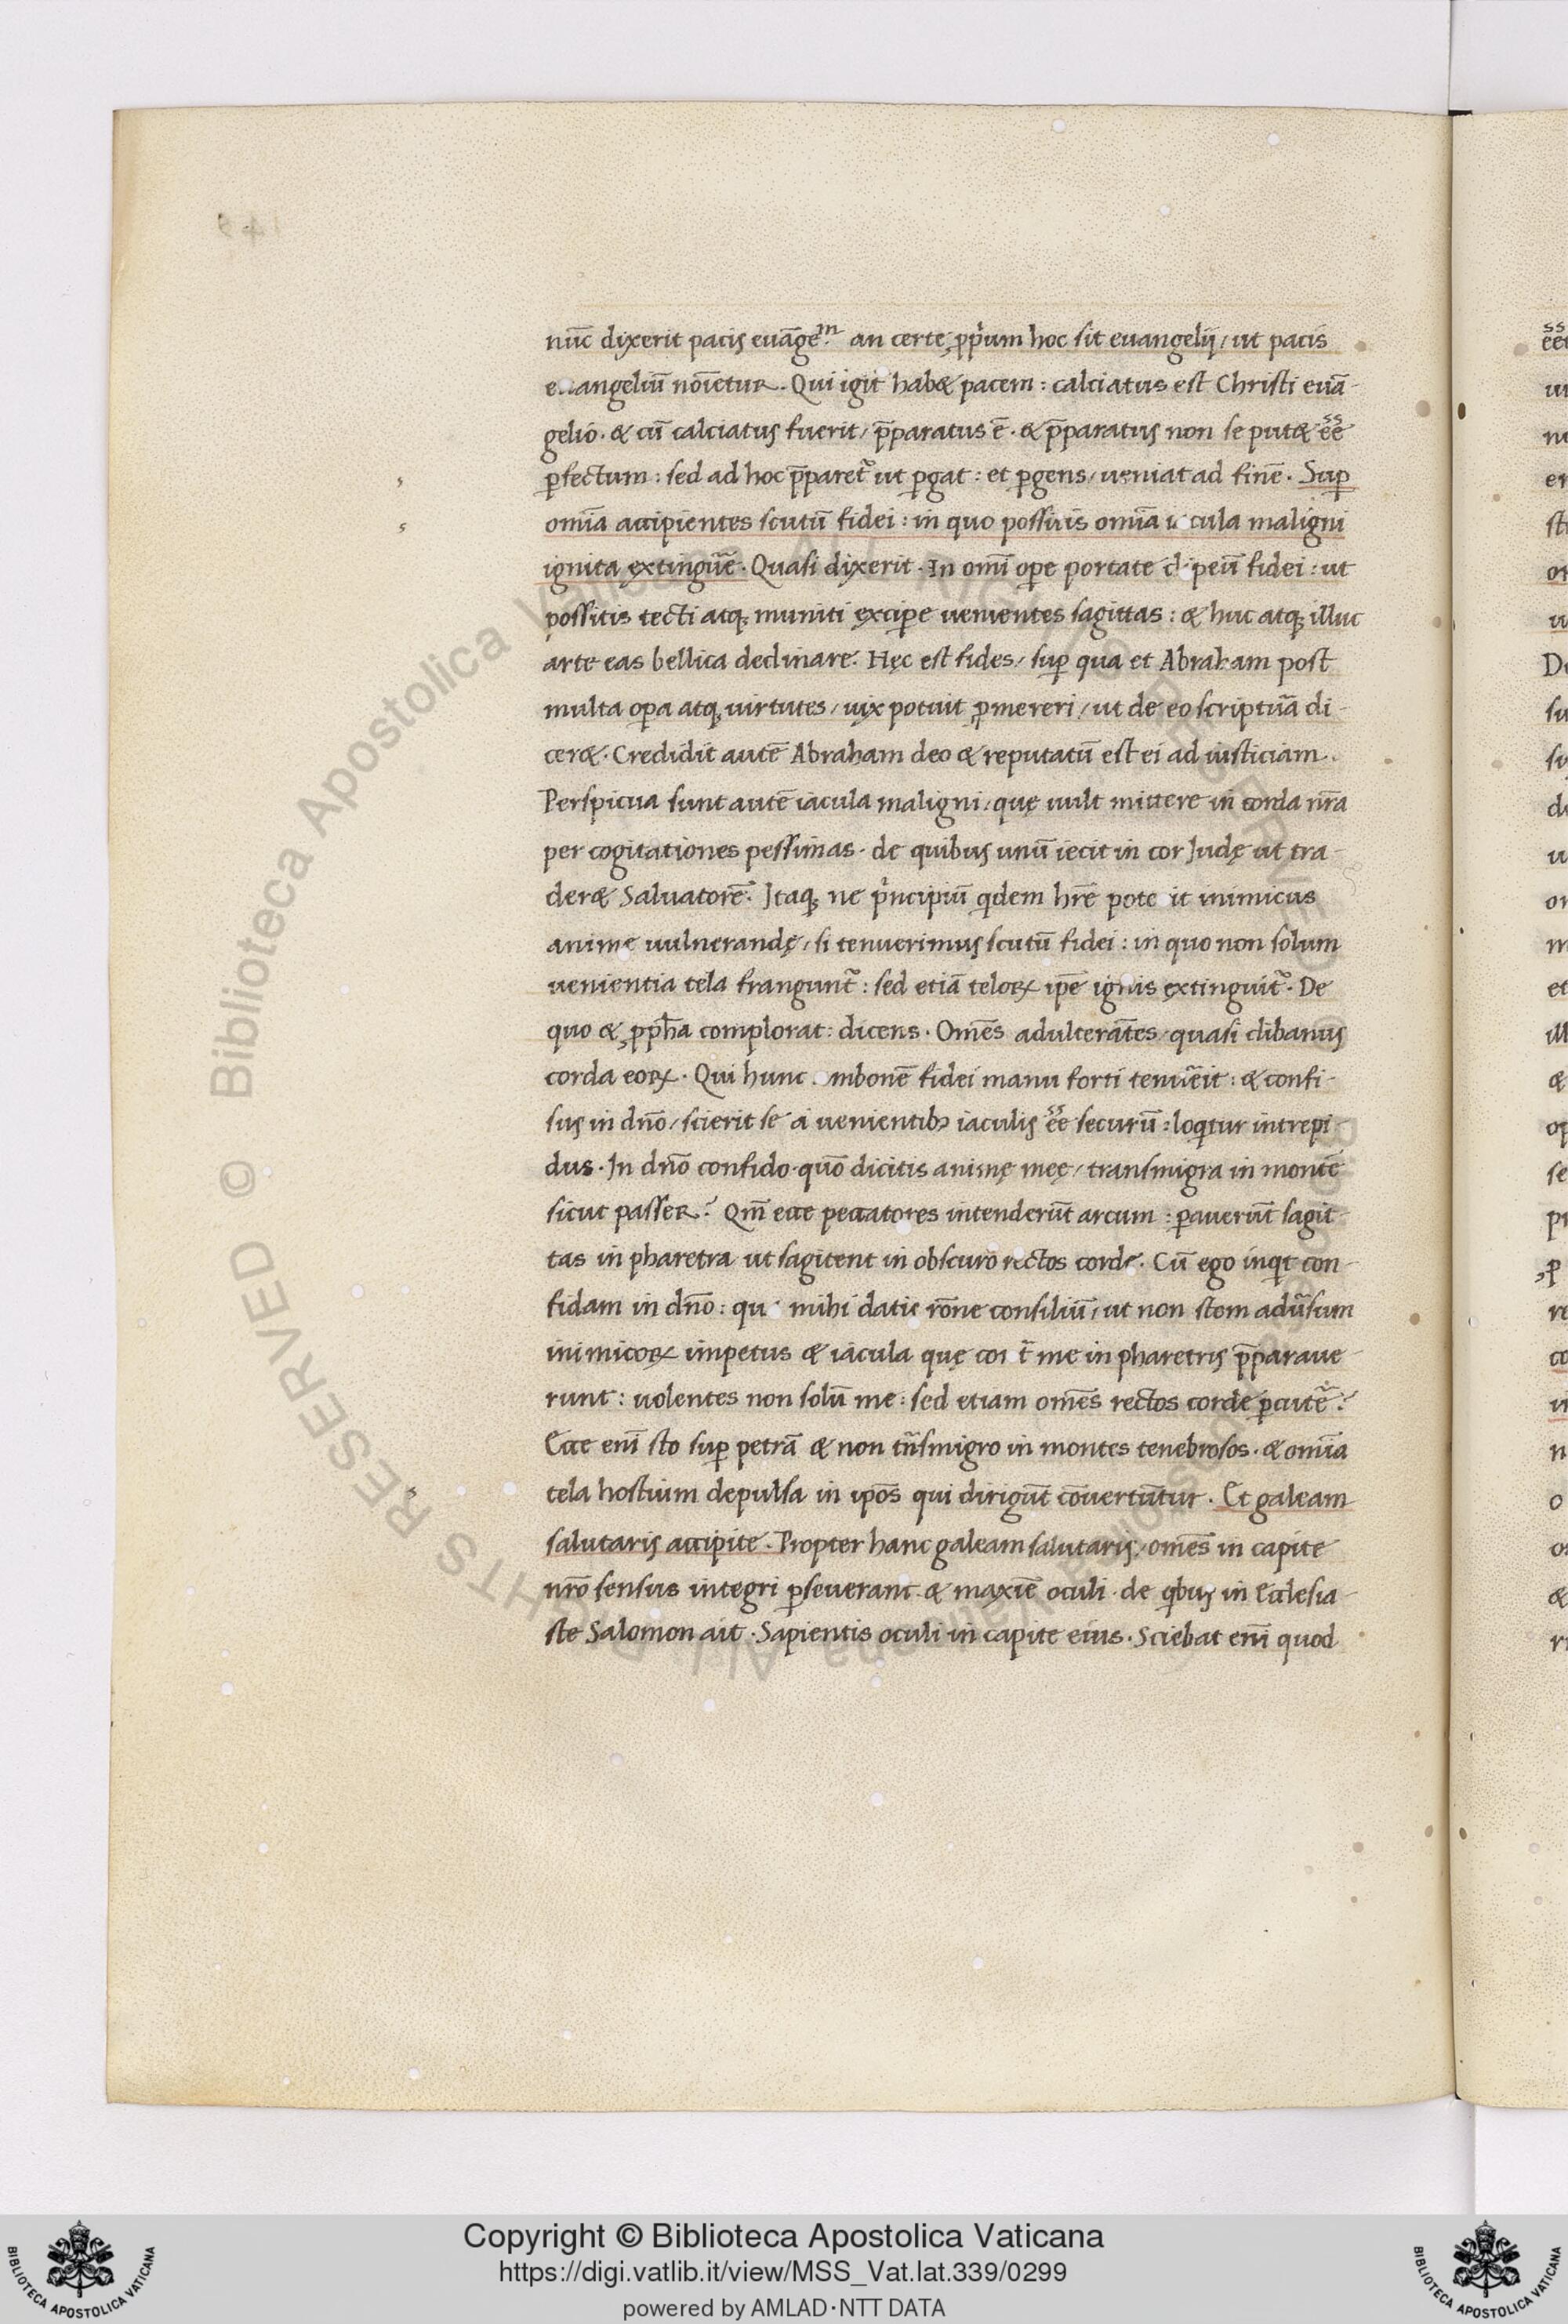 nūc dixerit pacis euāgeᵐ? an certe ꝓpͥum hoc sit euangelij / ut pacis
euangeliū noīetur. Qui igit̄ habet pacem : calciatus est Christi euā-
gelio. & cū calciatus fuerit / p̄paratus ē. & p̄paratus non se putet eē
ꝑfectum : sed ad hoc p̄paret᷑ ut ꝑgat : et ꝑgens / ueniat ad finē. Suꝑ
omīa accipientes scutū fidei : in quo possitis omīa iacula maligni
ignita extingūe. Quasi dixerit. In omī oꝑe portate clipeū fidei : ut
possitis tecti atq; muniti exciꝑe uenientes sagittas : & huc atq; illuc
arte eas bellica declinare. Hęc est fides / suꝑ qua et Abraham post
multa oꝑa atq; uirtutes / uix potuit ꝓmereri / ut de eo scriptūa di-
ceret. Credidit autē Abraham deo & reputatū est ei ad iusticiam.
Perspicua sunt autē iacula maligni / quę uult mittere in corda nr̄a
per cogitationes pessimas. de quibus unū iecit in cor Judę ut tra-
deret Saluatorē. Itaq; ne pͥncipiū qdem hr̄e poterit inimicus
animę uulnerandę / si tenuerimus scutū fidei : in quo non solum
uenientia tela frangunt᷑ : sed etiā teloꝝ ip̄e ignis extinguit᷑. De
quo & ꝓph̄a complorat : dicens. Om̄es adulterātes / quasi clibanus
corda eoꝝ. Qui hunc umbonē fidei manu forti tenūeit : & confi-
sus in dn̄o / scierit se a uenientibꝫ iaculis eē securū : loqtur intrepi-
dus. In dn̄o confido. quō dicitis animę meę / transmigra in montē
sicut passer? Qm̄ ecce peccatores intenderūt arcum : ꝑauerūt sagit-
tas in pharetra ut sagitent in obscuro rectos corde. Cū ego inqt con-
fidam in dn̄o : qu mihi datis rōne consiliū / ut non stem adūsum
inimicoꝝ impetus & iacula quę cont̄ me in pharetris p̄paraue-
runt : uolentes non solū me : sed etiam om̄es rectos corde ꝑcutē?
Ecce enī sto suꝑ petrā & non tn̄smigro in montes tenebrosos. & omīa
tela hostium depulsa in ip̄os qui dirigūt cōuertūtur. Et galeam
salutaris accipite. Propter hanc galeam salutaris / om̄es in capite
nr̄o sensus integri ꝑseuerant. & maxīe oculi. de qbus in Ecclesia-
ste Salomon ait. Sapientis oculi in capite eius. Sciebat enī quod
Copyright © Biblioteca Apostolica Vaticana
https://digi.vatlib.it/view/MSS_Vat.lat.339/0299
powered by AMLAD·NTT DATA